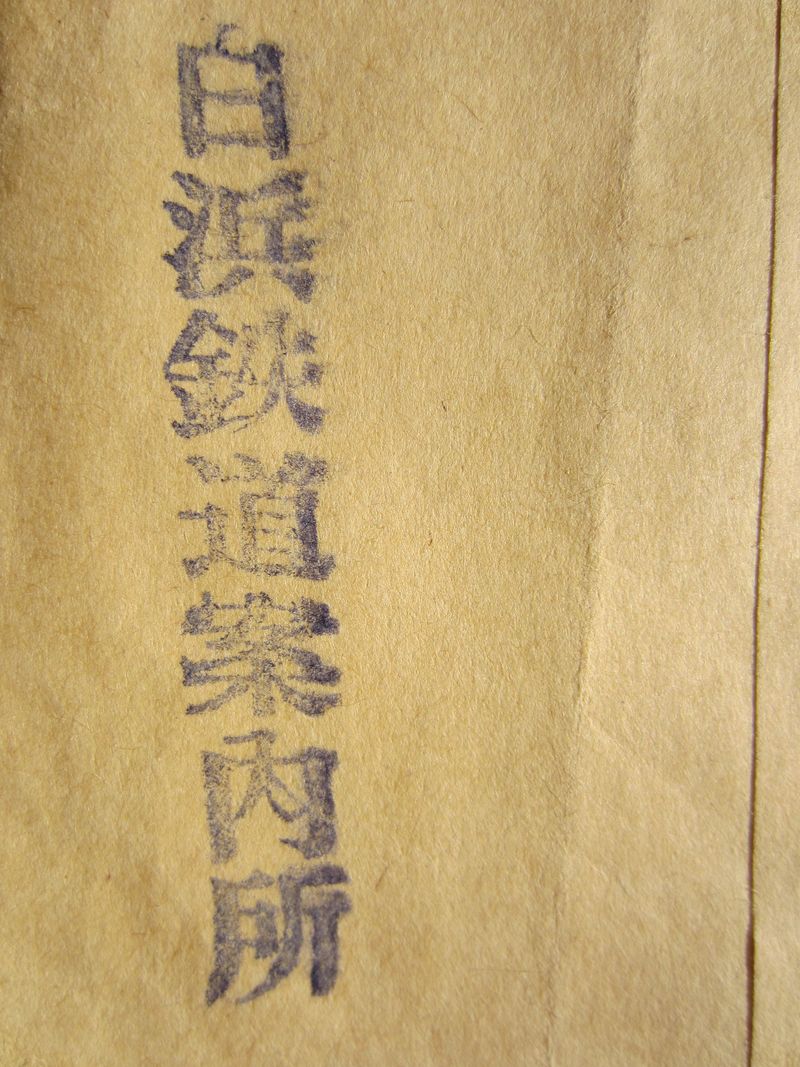 白浜鉄道案内所